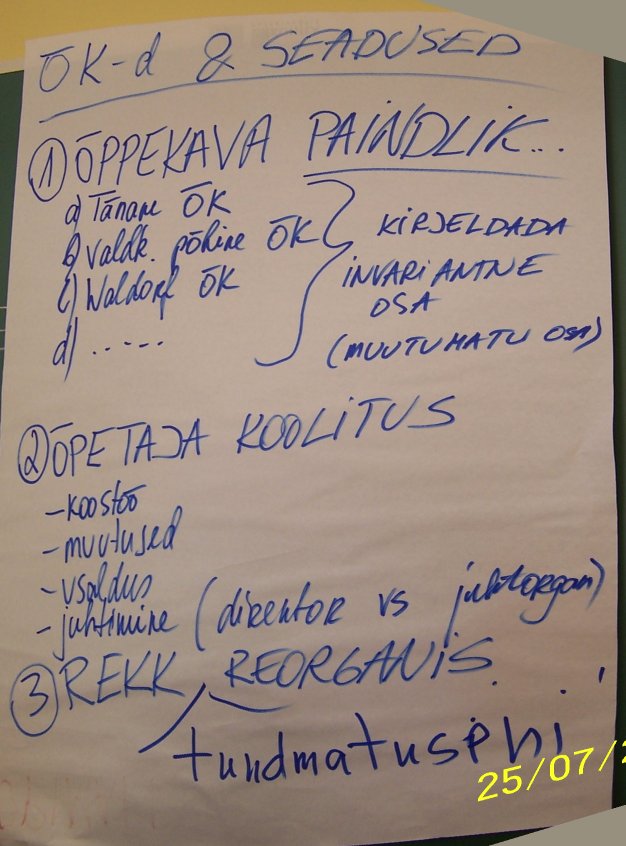 ÕK-d & SEADUSED
① ÕPPEKAVA PAINDLIK...
a) Tänane ÕK
b) Valdk. põhine ÕK
c) Waldorf ÕK
d) .....
KIRJELDADA
INVARIANTNE
OSA
(MUUTUMATU OSA)
② ÕPETAJA KOOLITUS
- koostöö
- muutused
- usaldus
- juhtimine (direktor vs juhtorgan)
③ REKK REORGANIS.
tundmatuseni
25/07/2